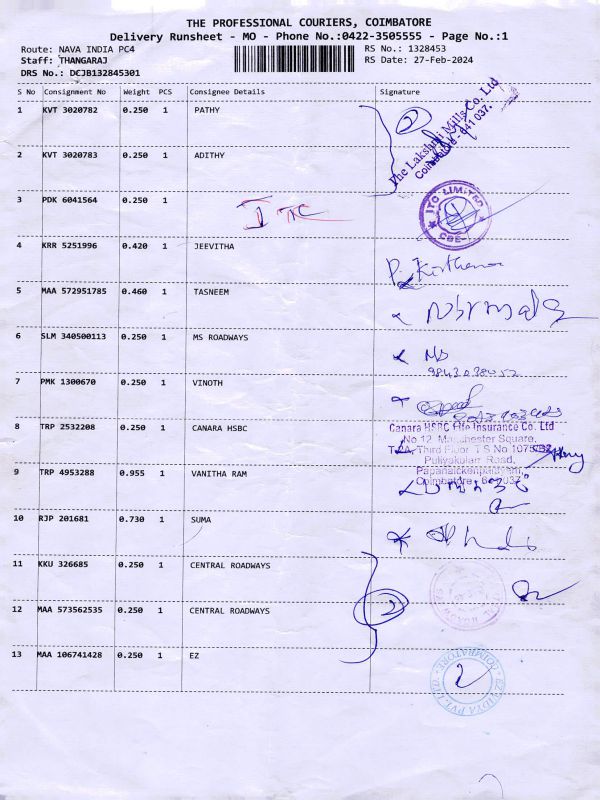 THE PROFESSIONAL COURIERS, COIMBATORE
Delivery Runsheet - MO - Phone No.:0422-3505555 - Page No.:1
Route: NAVA INDIA PC4 RS No.: 1328453
Staff: THANGARAJ RS Date: 27-Feb-2024
DRS No.: DCJB132845301
S No Consignment No Weight PCS Consignee Details Signature
1 KVT 3020782 0.250 1 PATHY
The Lakshmi Mills Co. Ltd
Coimbatore - 641 037.
2 KVT 3020783 0.250 1 ADITHY
3 PDK 6041564 0.250 1 ITC
ITC LIMITED
CBE
4 KRR 5251996 0.420 1 JEEVITHA
P. Kirthana
5 MAA 572951785 0.460 1 TASNEEM
6 SLM 340500113 0.250 1 MS ROADWAYS
MS
7 PMK 1300670 0.250 1 VINOTH
8 TRP 2532208 0.250 1 CANARA HSBC
Canara HSBC Life Insurance Co. Ltd
No 12, Manchester Square,
Third Floor, T S No 1075
Puliyakulam Road,
Papanaickenpalayam,
Coimbatore - 037
9 TRP 4953288 0.955 1 VANITHA RAM
10 RJP 201681 0.730 1 SUMA
11 KKU 326685 0.250 1 CENTRAL ROADWAYS
12 MAA 573562535 0.250 1 CENTRAL ROADWAYS
13 MAA 106741428 0.250 1 EZ
COIMBATORE
EZ VIDYA PVT. LTD